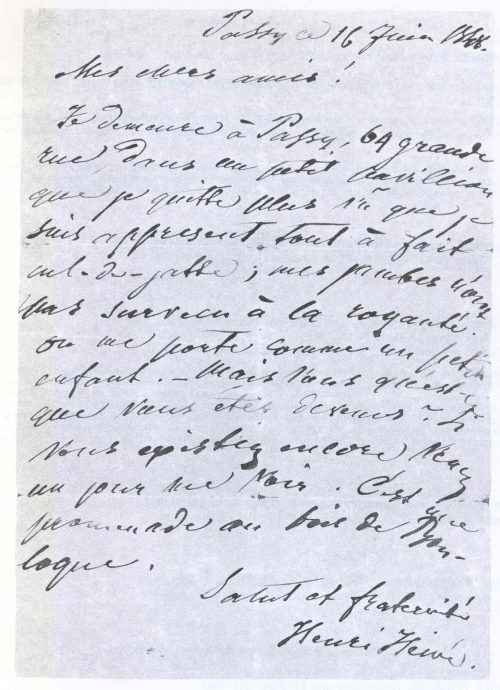 Passy ce 16 Juin 1848.
Mes chers amis!
Je demeure à Passy, 64 grande
rue, dans un petit pavillion
que je quitte plus vû que je
suis appresent tout à fait
cul-de-jatte; mes jambes n'ont
pas survecu à la royauté.
on me porte comme un petit
enfant. – Mais vous qu'est-
que vous etes devenus? Si
vous existez encore venez
un jour me voir. C'est une
promenade au bois de Bou-
logne.
Salut et fraternité
Henri Heine.